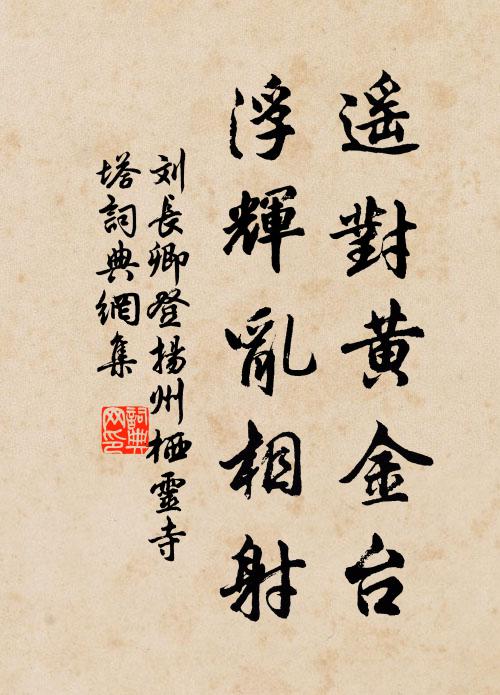 遥對黄金台
浮輝亂相射
刘長卿登揚州栖靈寺
塔詞典網集
詞典网印